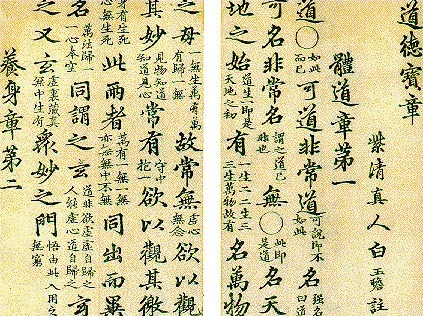 道德寶章
紫清真人白玉蟾註
體道章第一
道〇如此而已可道非常道可說即不如此名強名曰道
可名非常名謂之道已非也無〇此即是道名天
地之始道生一即是天地之初有一生二二生三三生萬物故有名萬物
之母一無生萬有萬有歸一無故常無虛心無念欲以觀
其妙見物知道知道見心常有守中抱一欲以觀其徼
身有生死心無生死此兩者萬有一無一無亦無無中不無同出而異
名萬法歸一一心本空同謂之玄道非欲虛虛自歸之人能虛心道自歸之玄
之又玄虛裏藏真無中生有眾妙之門悟由此入用之無窮
養身章第二